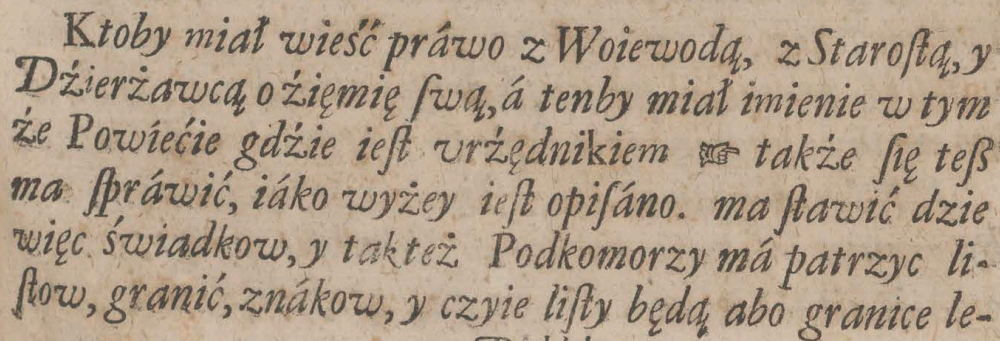 Ktoby miał wieść práwo z Woiewodą, z Staroſtą, y
Dźierżawcą o źięmię ſwą, á tenby miał imienie w tym
że Powiećie gdźie ieſt vrźędnikiem ☞ także ſię teß
ma ſpráwić, iáko wyżey ieſt opiſáno. ma ſtawić dzie
więc świadkow, y takteż Podkomorzy má patrzyc li-
ſtow, granić, znákow, y czyie liſty będą abo granice le-